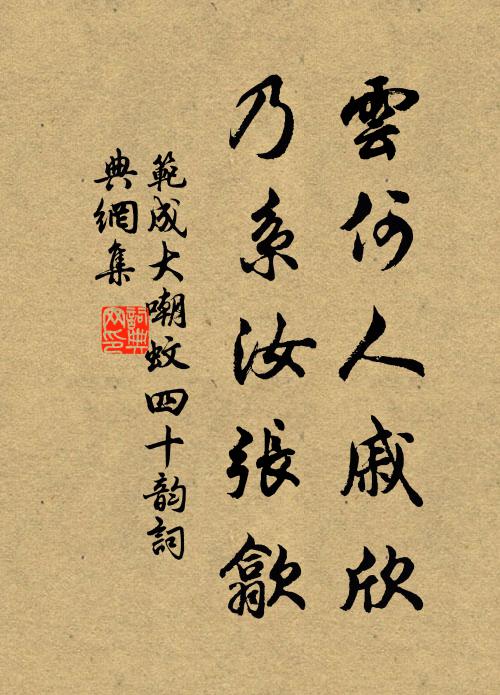 雲何人戚欣
乃系汝張歙
範成大嘲蚊四十韵詞
典網集
詞典网印